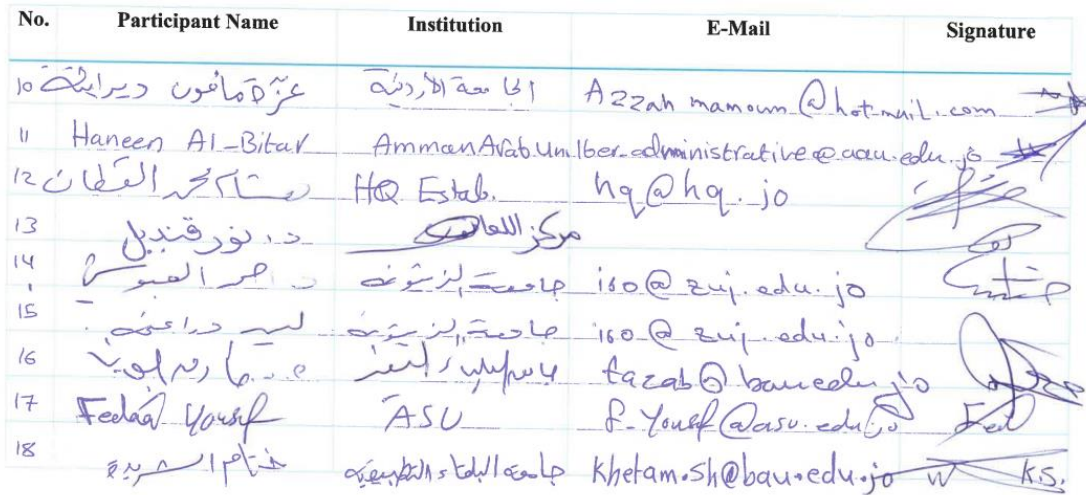 No. Participant Name Institution E-Mail Signature
10 عزة مأمون الجامعة الأردنية Azzah mamoun@hotmail.com
11 Haneen Al-Bitar Amman Arab Uni Iber.administrative@aau.edu.jo
12 محمد القطان HQ Estab. hq@hq.jo
13 د. نور قنديل مركز اللغات
14 د. العبوسي جامعة الزيتونة iso@zuj.edu.jo
15 جامعة الزيتونة iso@zuj.edu.jo
16 tazab@bau.edu.jo
17 Fedaa Yousef ASU f-Yousef@asu.edu.jo
18 ختام الشريدة جامعة البلقاء التطبيقية khetam.sh@bau.edu.jo K.S.